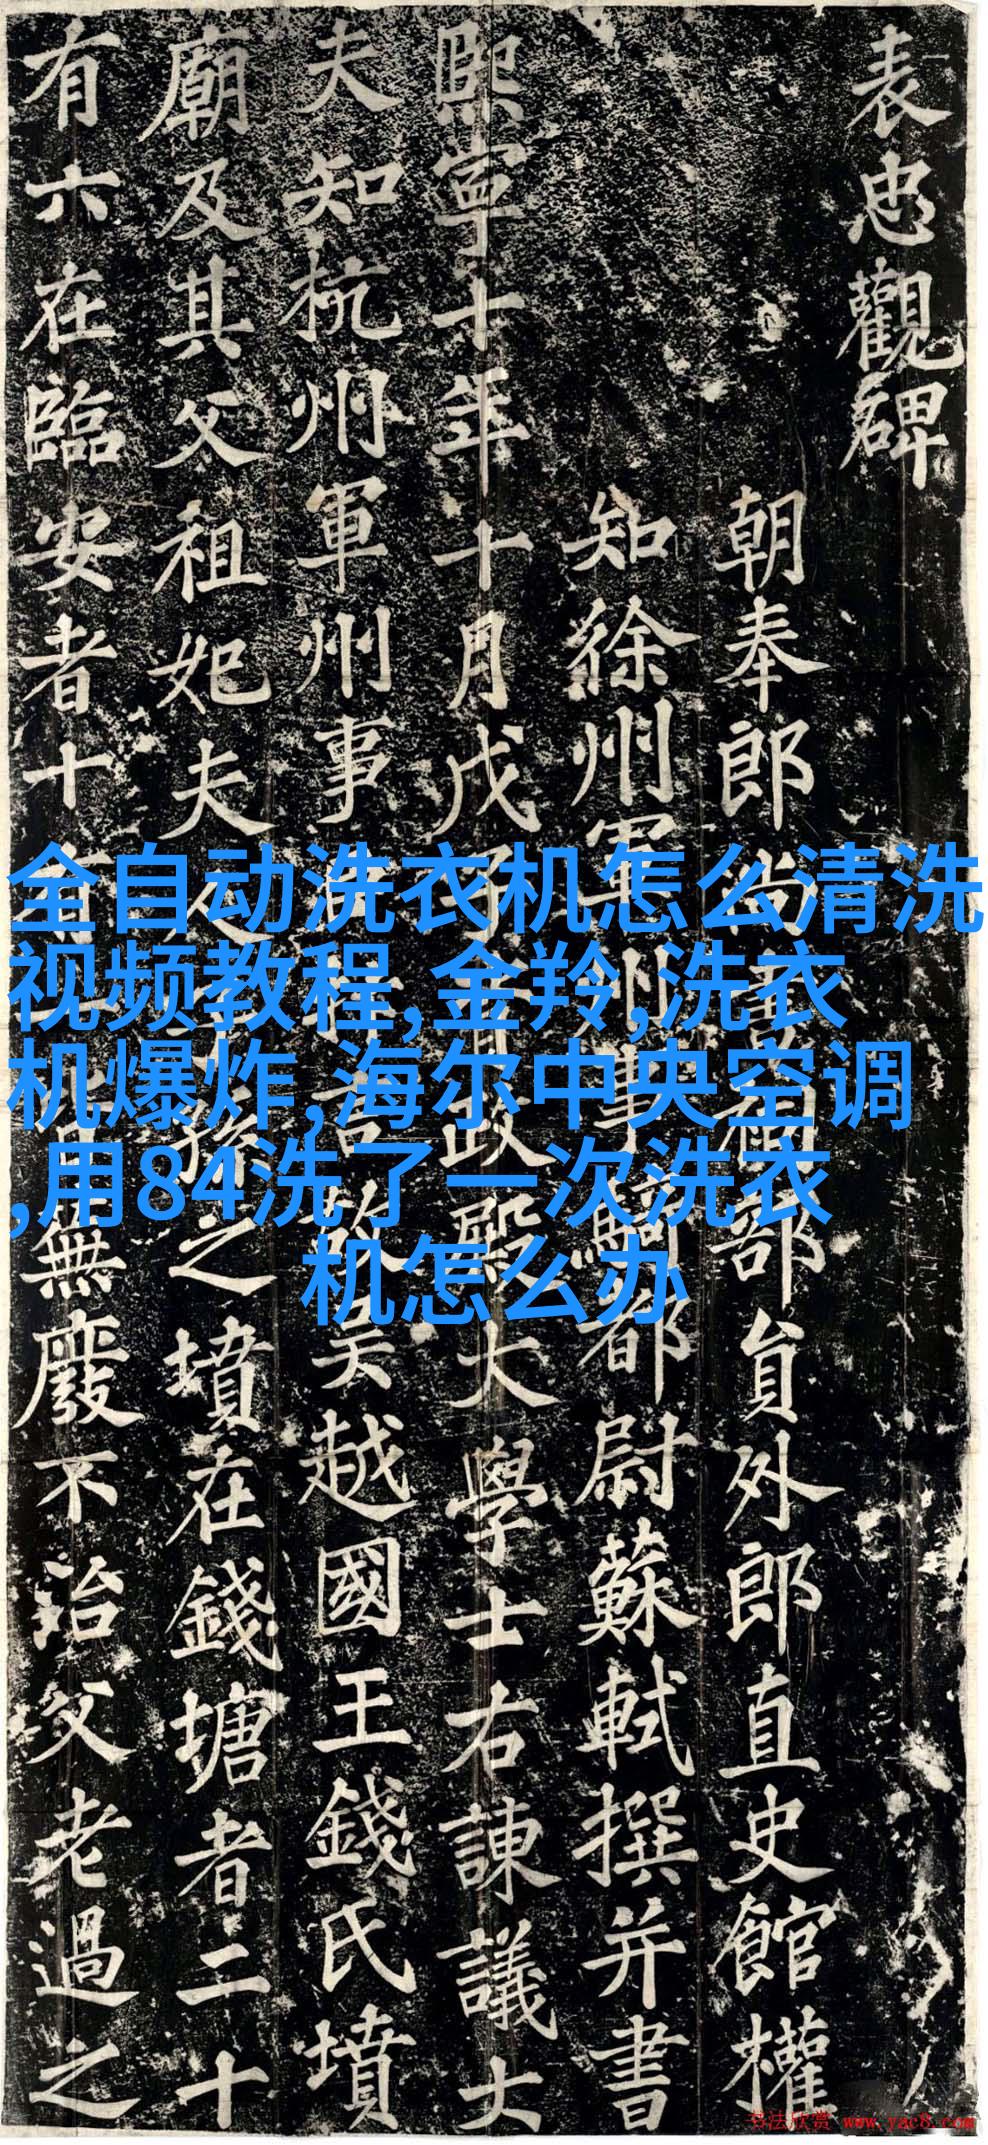 表忠觀碑
朝奉郎尚書祠部員外郎直史館權
知徐州軍州事騎都尉蘇軾撰并書
熙寧十年十月戊子資政殿大學士右諫議大
夫知杭州軍州事臣抃言故吳越國王錢氏墳
廟及其父祖妃夫人子孫之墳在錢塘者二十
有六在臨安者十有一皆蕪廢不治父老過之
全自动洗衣机怎么清洗
视频教程,金羚,洗衣
机爆炸,海尔中央空调
,用84洗了一次洗衣
机怎么办
书法欣赏 www.yac8.com